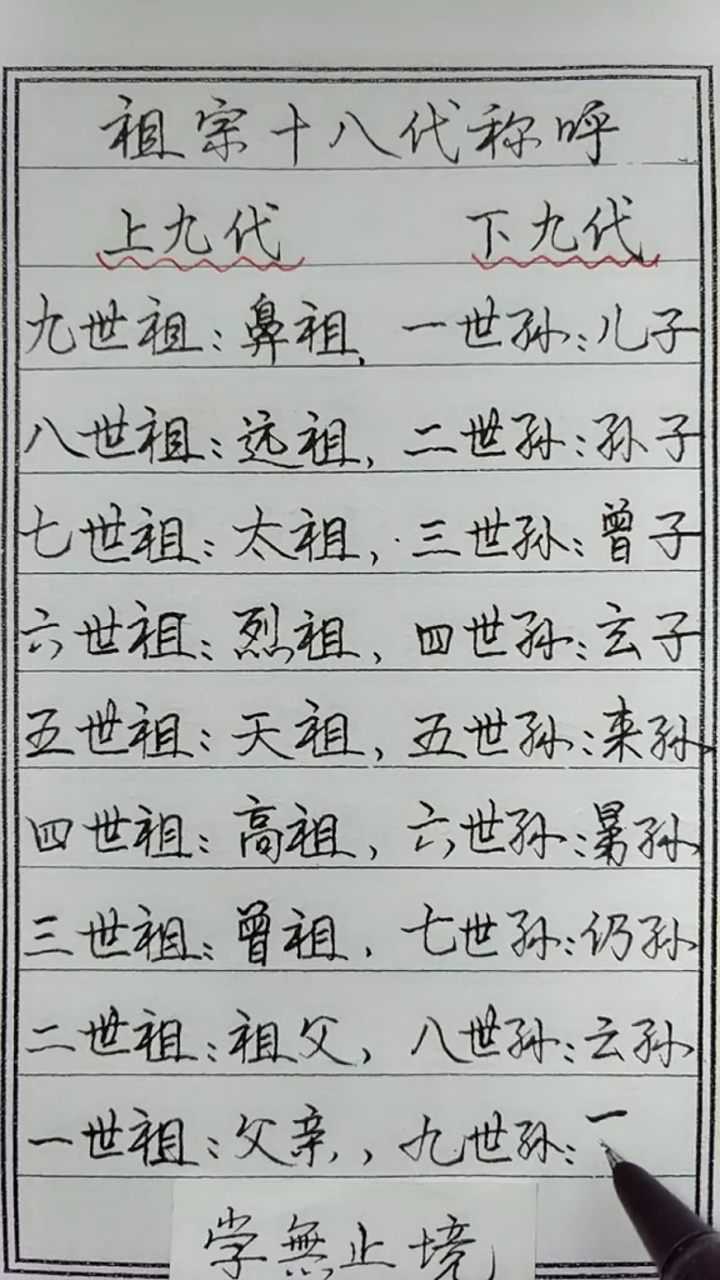 祖宗十八代称呼
上九代 下九代
九世祖：鼻祖，一世孙：儿子
八世祖：远祖，二世孙：孙子
七世祖：太祖，三世孙：曾子
六世祖：烈祖，四世孙：玄子
五世祖：天祖，五世孙：来孙
四世祖：高祖，六世孙：晜孙
三世祖：曾祖，七世孙：仍孙
二世祖：祖父，八世孙：云孙
一世祖：父亲，九世孙：一
学無止境